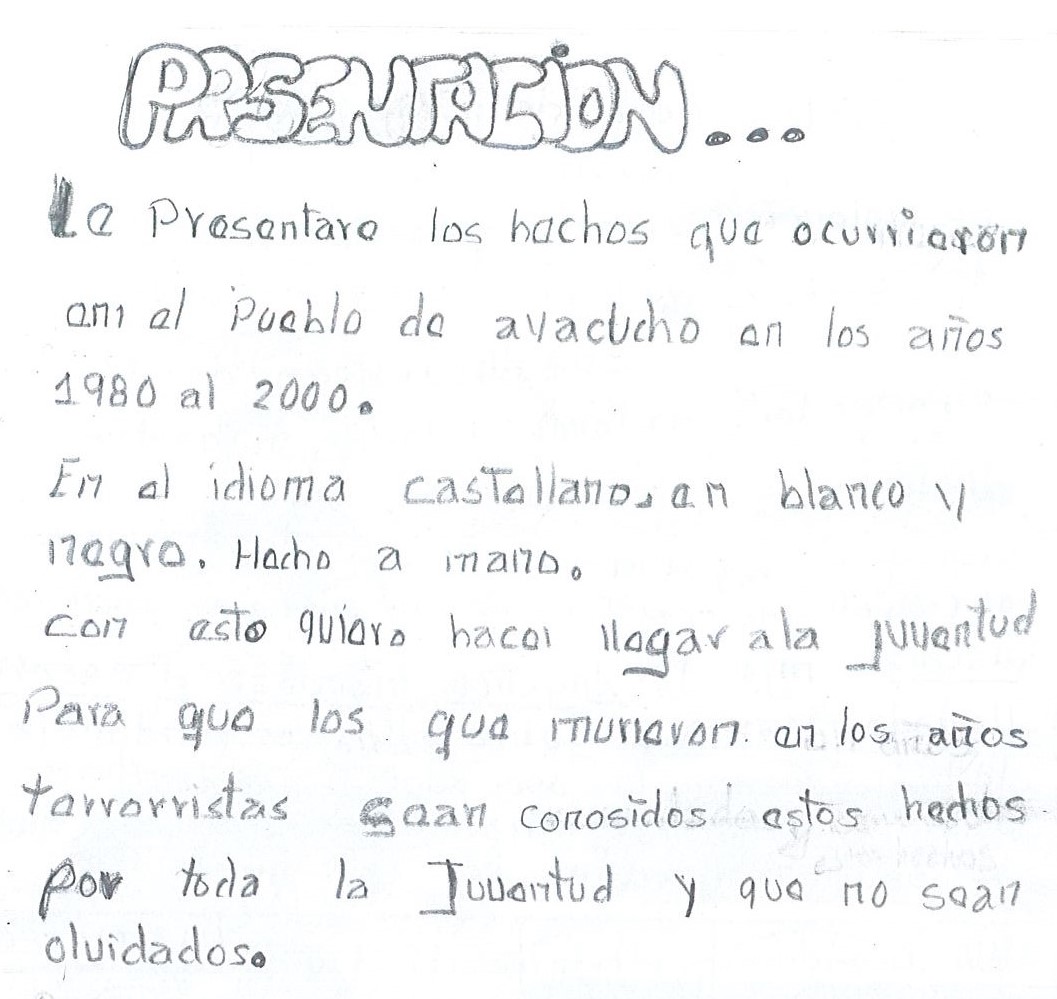 PRESENTACION...
Le Presentare los hechos que ocurrieron
en el Pueblo de ayacucho en los años
1980 al 2000.
En el idioma castellano, en blanco y
negro. Hecho a mano.
con esto quiero hacer llegar a la juventud
Para que los que murieron en los años
terrorristas sean conosidos estos hechos
por toda la Juventud y que no sean
olvidados.